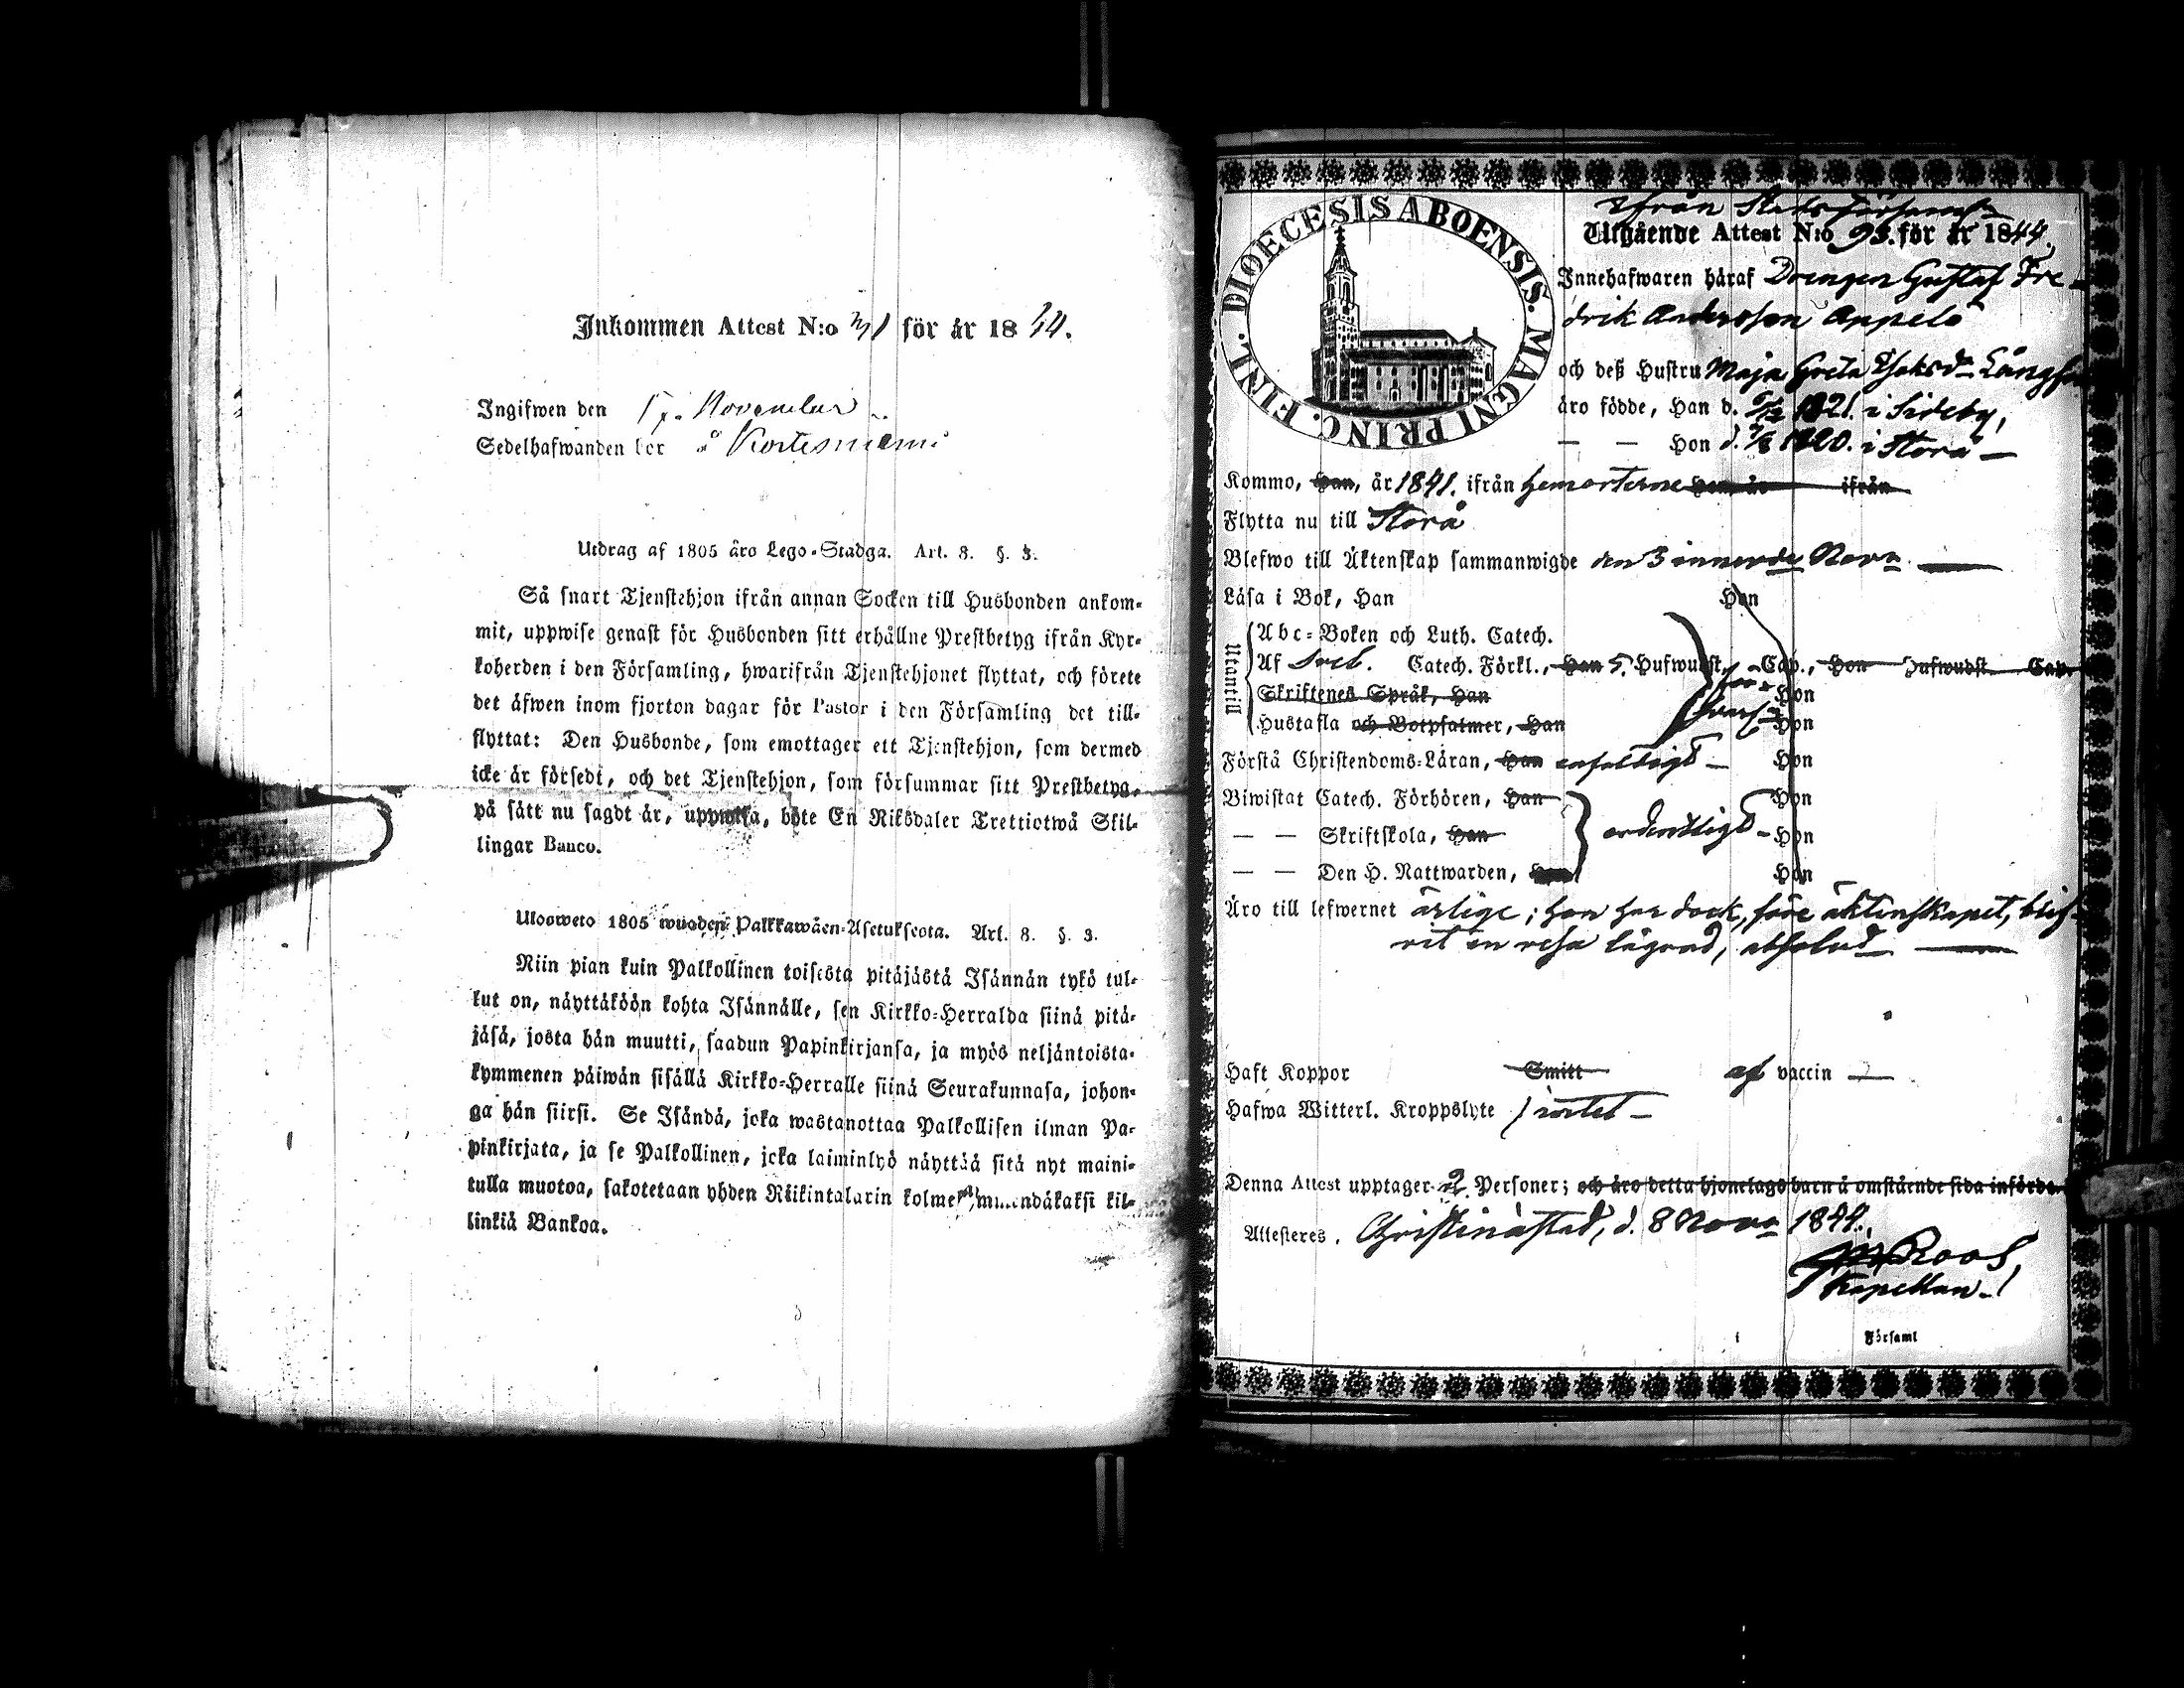 Inkommen Attest N:o 71 för år 1844.
Ingifwen den 17. November
Sedelhafwanden bor å Kortesniemi
Utdrag af 1805 års Lego-Stadga. Art. 8. §. 3.
Så snart Tjenstehjon ifrån annan Socken till Husbonden ankom-
mit, uppwise genast för Husbonden sitt erhållne Prestbetyg ifrån Kyr-
koherden i den Församling, hwarifrån Tjenstehjonet flyttat, och förete
det äfwen inom fjorton dagar för Pastor i den Församling det till-
flyttat: Den Husbonde, som emottager ett Tjenstehjon, som dermed
icke är försedt, och det Tjenstehjon, som försummar sitt Prestbetyg,
på sätt nu sagdt är, uppwisa, böte En Riksdaler Trettiotwå Skil-
lingar Banco.
Ulosweto 1805 wuoden Palkkawäen-Asetuksesta. Art. 8. §. 3.
Niin pian kuin Palkollinen toisesta pitäjästä Isännän tykö tul-
lut on, näyttäköön kohta Isännälle, sen Kirkko-Herralda siinä pitä-
jäsä, josta hän muutti, saadun Papinkirjansa, ja myös neljäntoista-
kymmenen päiwän sisällä Kirkko-Herralle siinä Seurakunnasa, johon-
ga hän siirsi. Se Isändä, joka wastanottaa Palkollisen ilman Pa-
pinkirjata, ja se Palkollinen, joka laiminlyö näyttää sitä nyt maini-
tulla muotoa, sakotetaan yhden Riikintalarin kolmekymmendäkaksi kil-
linkiä Bankoa.
DIOECESIS ABOENSIS. MAGNI PRINC. FINL.
ifrån Stads församl.
Utgående Attest N:o 93. för år 1844.
Innehafwaren häraf Drengen Gustaf Fre-
drik Andersson Appelö
och deß Hustru Maja Greta Isaksd. Långf
äro födde, Han d. 6/12 1821. i Sideby,
— — Hon d. 7/8 1820. i Storå —
Kommo, Han, år 1841. ifrån hemorterne Hon år ifrån
Flytta nu till Storå
Blefwo till Äktenskap sammanwigde den 3 innevde Novr
Läsa i Bok, Han Hon
Utantill
Abc-Boken och Luth. Catech.
Af Sveb. Catech. Förkl., Han 5. Hufwudst. Cap., Hon Hufwudst. Cap.
Skriftenes Språk, Han Hon
Hustafla och Botpsalmer, Han Hon
Förstå Christendoms-Läran, Han enfaldigt — Hon
Biwistat Catech. Förhören, Han Hon
— — Skriftskola, Han ordentligt — Hon
— — Den H. Nattwarden, Han Hon
Äro till lefwernet ärlige; hon har dock, före äktenskapet, blif-
vit en resa lägrad, absolverad
Haft Koppor Smitt af vaccin
Hafwa Witterl. Kroppslyte intet —
Denna Attest upptager 2 Personer; och äro detta hjonelags barn å omstående sida införde.
Attesteres, Christinæstad, d. 8 Novr 1844.
Roos,
Kapellan.
i Församl